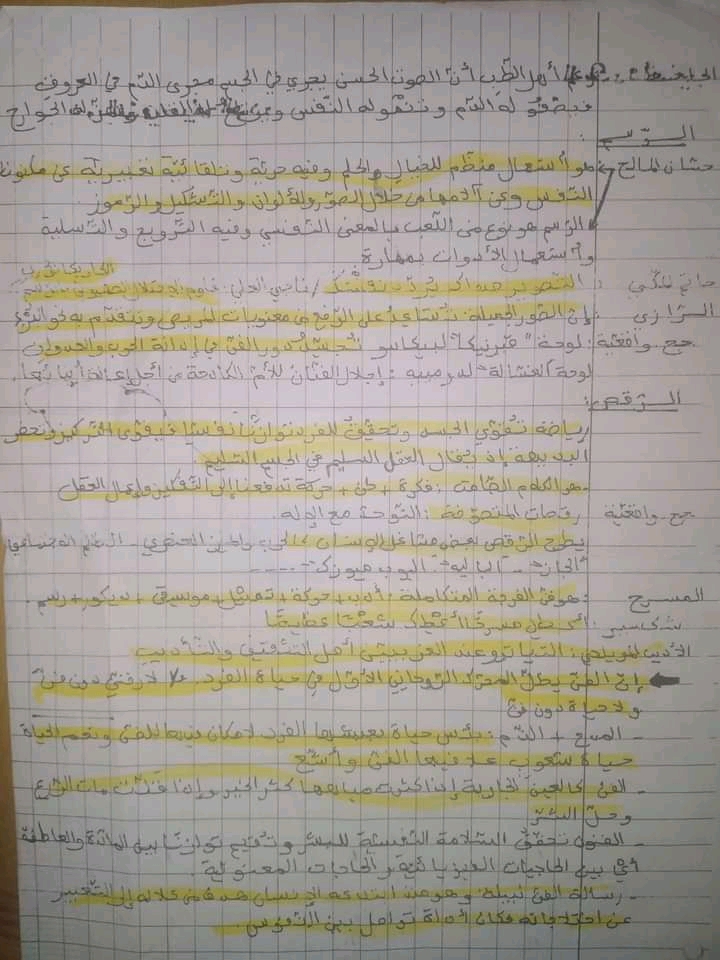 أهل الطب أن الصوت الحسن يجري في الجسم مجرى الدم في العروق
فيصفو له الدم وتنمو له النفس و الجوارح
الرسم :
حسان المالح هو استعمال منظم للخيال والحلم وفيه حرية وتلقائية تعبيرية عن مكنونات
النفس وعن آلامها من خلال الصور والألوان والتشكيل والرموز
الرسم هو نوع من اللعب بالمعنى النفسي وفيه الترويح والتسلية
واستعمال الأدوات بمهارة
الكاريكاتوريست
حاتم المكي : التصوير هو /ناجي العلي :
الرازي : إن الصور الجميلة تساعد على الرفع من معنويات المريض وتتقدم به نحو البرء
حجج واقعية : لوحة "قيرنيكا" لبيكاسو تجسيد لدور الفن في إدانة الحرب والعدوان
لوحة "الغسالة" لدومييه : إجلال الفنان للأم الكادحة من أجل إعالة أبنائها.
الرقص :
رياضة تقوي الجسد وتحقق للفرد توازنا نفسيا فيقوى التركيز وتحضر
البديهة إذ يقال العقل السليم في الجسم السليم
- هو الكلام الصامت : فكرة + لحن + حركة تدفعنا إلى التفكير وإعمال العقل
حجج واقعية رقصات المتصوفة : التوحد مع الإله.
يطرح الرقص بعض مشاغل الإنسان كالحرب والميز العنصري - الظلم الاجتماعي
"الجاز" - "الباليه" - البوب ميوزك - ....
المسرح : هو فن الفرجة المتكاملة : أدب + حركة + تمثيل + موسيقى + ديكور + رسم.
شكسبير : أعطني مسرحا أعطك شعبا عظيما
الأديب المويلحي : التياترو عند الغربيين أهل التثقيف والتأديب
إن الفن يظل المحرك الروحاني الأول في حياة الفرد. فلا رقي دون فن
ولا حياة دون فن
- المسرح + القيم : بئس حياة يعيشها الفرد لا مكان فيها للفن ونعم الحياة
حياة شعوب علا فيها الفن وأشع
- الفن كالعين الجارية إذا كثرت مياهها كثر الخير وإذا قلت مات الزرع
وحل الشر
- الفنون تحقق السلامة النفسية للبشر وتقيم توازنا بين المادة والعاطفة
أي بين الحاجيات الفيزيائية والحاجات المعنوية.
- رسالة الفن نبيلة. وهو منذ ابتدعه الإنسان هدف من خلاله إلى التعبير
عن اختلاجاته فكان أداة تواصل بين النفوس.